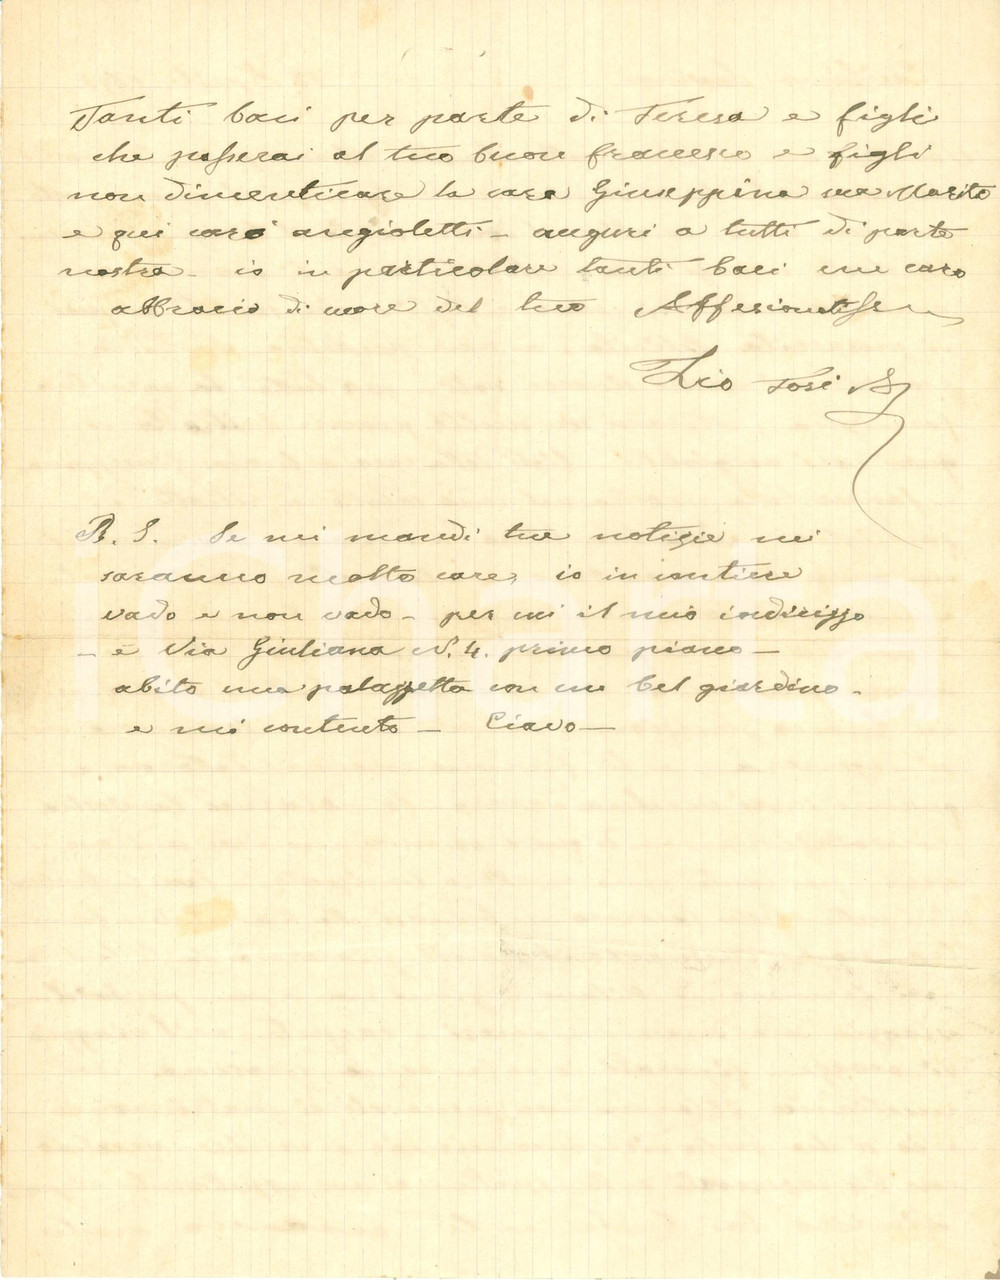 Tanti baci per parte di Teresa e figli
che passerai al tuo buon francesco e figli
non dimenticare la cara Giuseppina suo Marito
e qui cari angioletti - auguri a tutti di parte
nostra - io in particolare tanti baci un caro
abbracio di cuore del tuo Affesionatiss
Zio Tosi
P. S. Se mi mandi tue notizie mi
saranno molto care, io in cantiere
vado e non vado - per cui il mio indirizzo
- è Via Giuliana N. 4. primo piano -
abito una palazzetta con un bel giardino -
e mi contento - Ciavo -